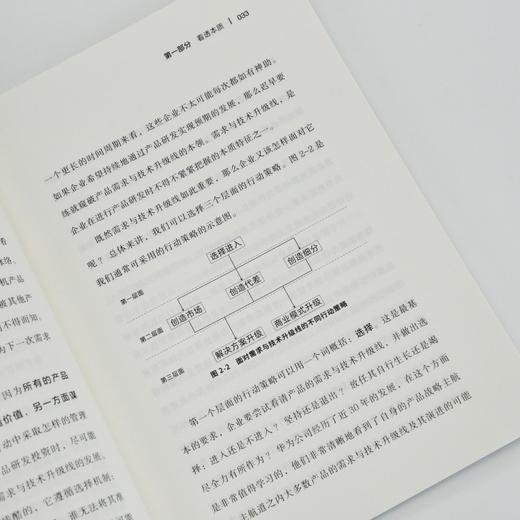 第一部分 看透本质 | 033
一个更长的时间周期来看，这些企业不太可能每次都如有神助。
如果企业希望持续地通过产品研发实现预期的发展，那么迟早要
练就窥破产品需求与技术升级线的本领。需求与技术升级线，是
企业在进行产品研发时不得不紧紧把握的本质特征之一。
既然需求与技术升级线如此重要，那么企业又该怎样面对它
呢？总体来讲，我们可以选择三个层面的行动策略。图 2-2 是
我们通常可采用的行动策略的示意图。
选择进入
第一层面
创造市场
创造代差
创造细分
第二层面
解决方案升级
商业模式升级
第三层面
图 2-2 面对需求与技术升级线的不同行动策略
第一个层面的行动策略可以用一个词概括：选择。这是最基
本的要求，企业要尝试看清产品的需求与技术升级线，并做出选
择：进入还是不进入？坚持还是退出？放任其自行生长还是竭
尽全力有所作为？华为公司经历了近 30 年的发展，在这个方面
是非常值得学习的，他们非常清晰地看到了自身的产品战略主航
主航道之内大多数产品的需求与技术升级线及其演进的可能
机产品
被其他产
不得而知、
为下一次需求
因为所有的产品
价值，另一方面谋
动中采取怎样的管理
产品研发投资时，尽可能
需求与技术升级线的发展。
酷的，它遵循选择机制：
谁无法将其准